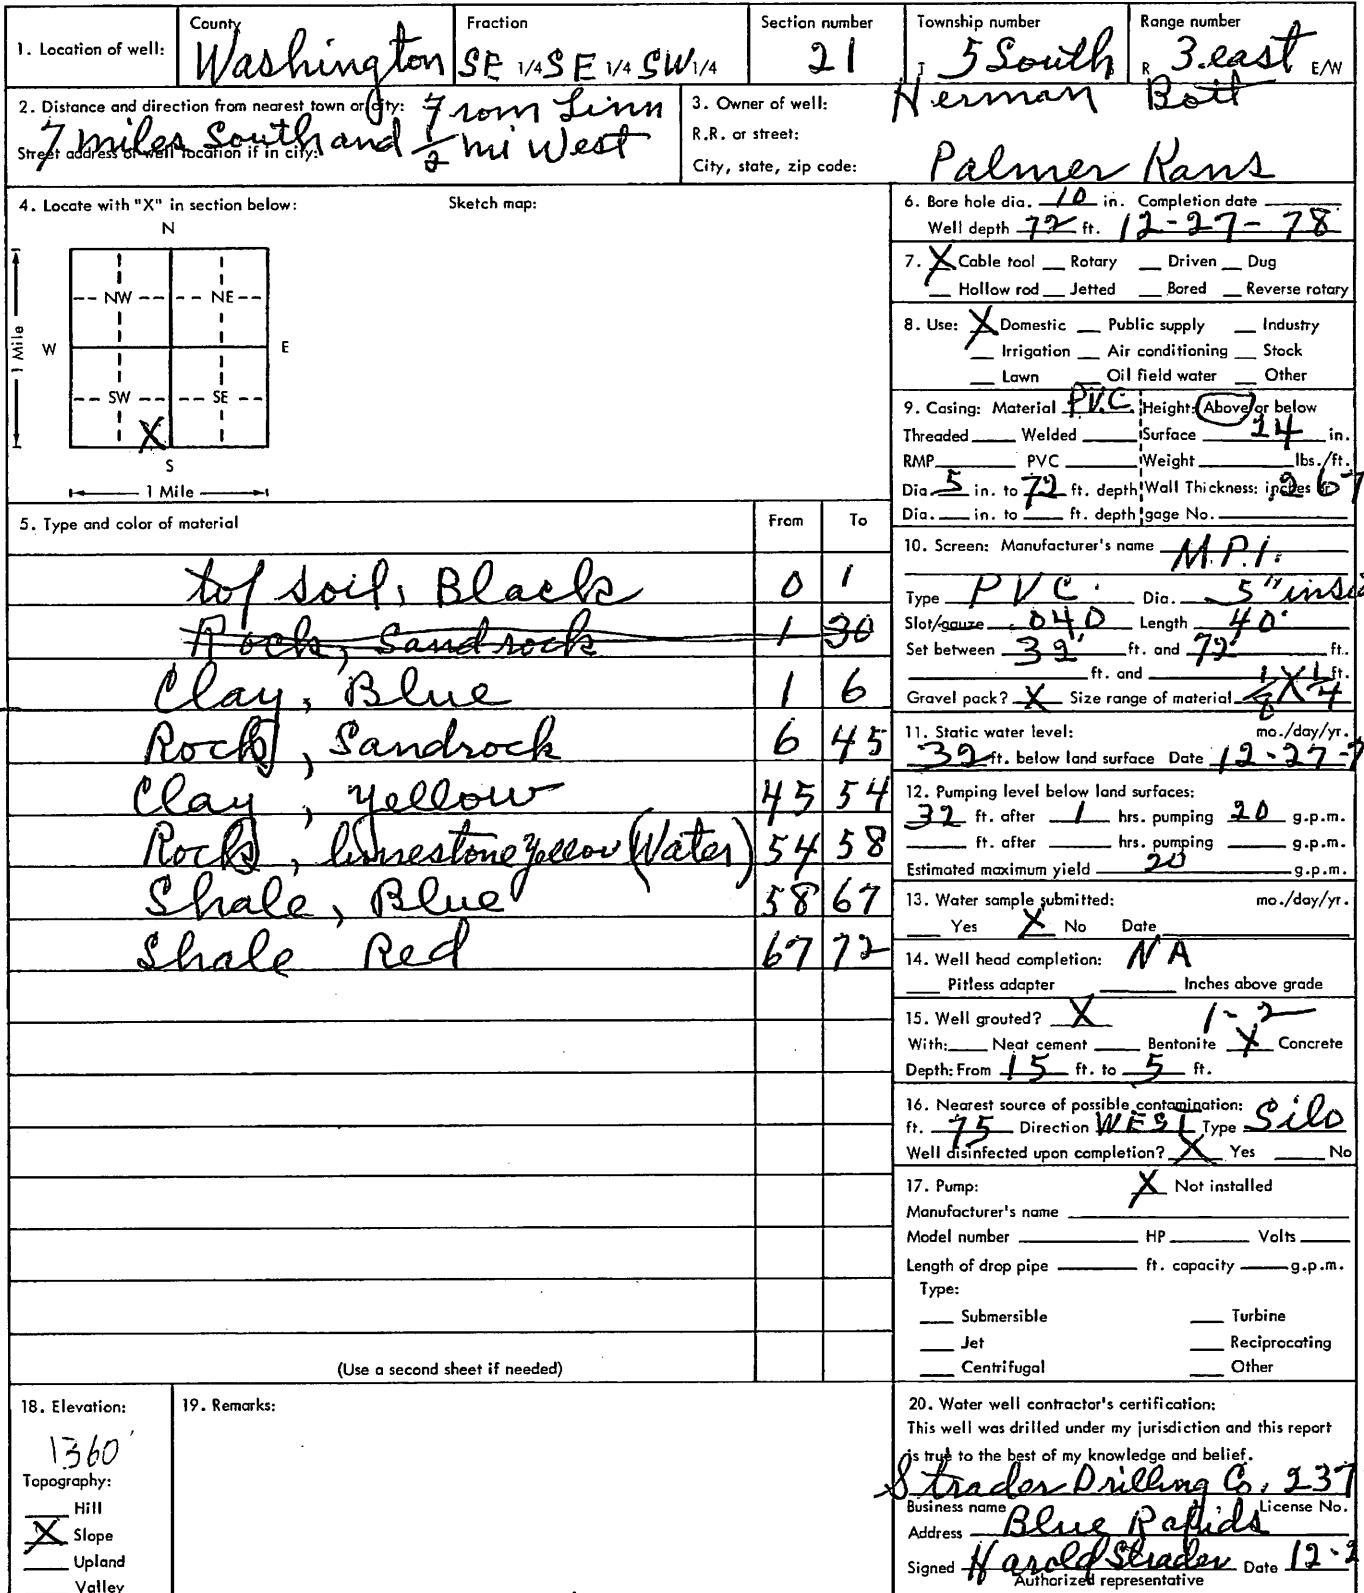 County Fraction Section number Township number Range number
1. Location of well: Washington SE 1/4 SE 1/4 SW 1/4 21 T 5 South R 3.east E/W
2. Distance and direction from nearest town or city: From Linn
7 miles South and 1/2 mi West
Street address of well location if in city:
3. Owner of well: Herman Bott
R.R. or street:
City, state, zip code: Palmer Kans
4. Locate with "X" in section below: Sketch map:
N
NW NE
W E
1 Mile
SW SE
X
S
1 Mile
5. Type and color of material From To
top soil, Black 0 1
Rock, Sandrock 1 30
Clay, Blue 1 6
Rock, Sandrock 6 45
Clay, yellow 45 54
Rock, limestone yellow (Water) 54 58
Shale, Blue 58 67
Shale Red 67 72
(Use a second sheet if needed)
6. Bore hole dia. 10 in. Completion date
Well depth 72 ft. 12-27-78
7. X Cable tool __ Rotary __ Driven __ Dug
__ Hollow rod __ Jetted __ Bored __ Reverse rotary
8. Use: X Domestic __ Public supply __ Industry
__ Irrigation __ Air conditioning __ Stock
__ Lawn __ Oil field water __ Other
9. Casing: Material PVC Height: Above or below
Threaded __ Welded __ Surface 24 in.
RMP __ PVC __ Weight __ lbs./ft.
Dia. 5 in. to 72 ft. depth Wall Thickness: inches or .267
Dia. __ in. to __ ft. depth gage No. __
10. Screen: Manufacturer's name M.P.I.
Type PVC. Dia. 5" insi
Slot/gauze .040 Length 40'
Set between 32' ft. and 72' ft.
__ ft. and __ ft.
Gravel pack? X Size range of material 1/8 X 1/4
11. Static water level: mo./day/yr.
32 ft. below land surface Date 12-27-7
12. Pumping level below land surfaces:
32 ft. after 1 hrs. pumping 20 g.p.m.
__ ft. after __ hrs. pumping __ g.p.m.
Estimated maximum yield 20 g.p.m.
13. Water sample submitted: mo./day/yr.
__ Yes X No Date __
14. Well head completion: NA
__ Pitless adapter __ Inches above grade
15. Well grouted? X 1-2
With: __ Neat cement __ Bentonite X Concrete
Depth: From 15 ft. to 5 ft.
16. Nearest source of possible contamination:
ft. 75 Direction WEST Type Silo
Well disinfected upon completion? X Yes __ No
17. Pump: X Not installed
Manufacturer's name __
Model number __ HP __ Volts __
Length of drop pipe __ ft. capacity __ g.p.m.
Type:
__ Submersible __ Turbine
__ Jet __ Reciprocating
__ Centrifugal __ Other
18. Elevation:
1360'
Topography:
__ Hill
X Slope
__ Upland
Valley
19. Remarks:
20. Water well contractor's certification:
This well was drilled under my jurisdiction and this report
is true to the best of my knowledge and belief.
Strader Drilling Co. 237
Business name License No.
Address Blue Rapids
Signed Harold Strader Date 12-2
Authorized representative